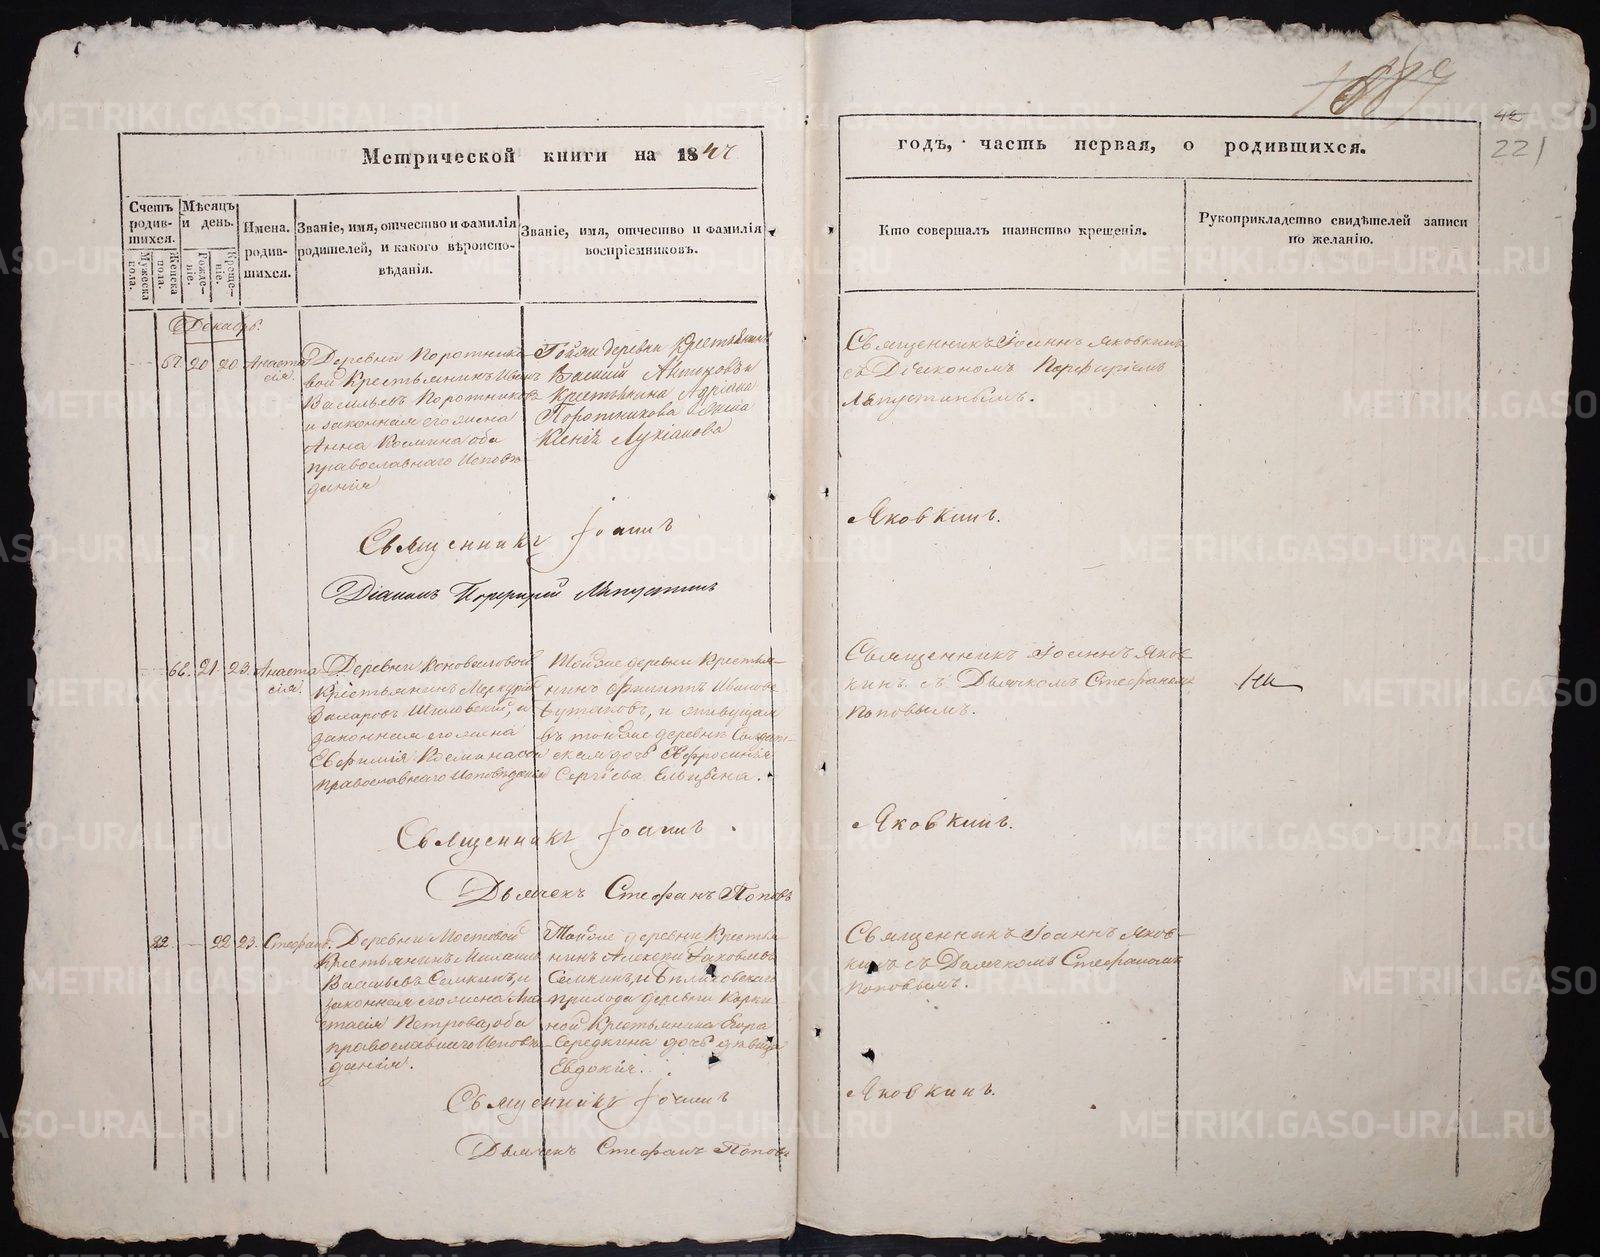 Метрической книги на 1847
годъ, часть первая, о родившихся.
221
Счетъ родившихся.
Мужеска пола.
Женска пола.
Мѣсяцъ и день.
Рожденіе.
Крещеніе.
Имена родившихся.
Званіе, имя, отчество и фамилія
родителей, и какого вѣроиспо-
вѣданія.
Званіе, имя, отчество и фамилія
воспріемниковъ.
Кто совершалъ таинство крещенія.
Рукоприкладство свидѣтелей записи
по желанію.
Декабрь.
20 20. Анаста
сія.
Деревни Поротнико
вой Крестьянинъ Иванъ
Васильевъ Поротниковъ
и законная его жена
Анна Космина оба
православнаго Исповѣ
данія
деревни Крестьянинъ
Василій
Крестьянина
Поротникова жена
Лукіанова
Священникъ Іоаннъ Яковкинъ
съ Діакономъ Порфиріемъ
Ляпустинымъ.
Священникъ Іоаннъ
Яковкинъ.
Діаконъ Порфирій Ляпустинъ
68. 21. 23. Анаста
сія.
Деревни Коноваловой
Крестьянинъ Меркурій
Захаровъ и
законная его жена
Евфимія Космина оба
православнаго Исповѣданія
Той же деревни Крестья-
нинъ Филиппъ Ивановъ
и живущая
въ той же деревнѣ Солдат-
ская дочь Евфросинія
Сергѣева Ельцына.
Священникъ Іоаннъ Яков-
кинъ съ Дьячкомъ Стефаномъ
Поповымъ.
Священникъ Іоаннъ
Яковкинъ.
Дьячекъ Стефанъ Поповъ
82. 22 23. Стефанъ.
Деревни Мостовой
Крестьянинъ Михаилъ
Васильевъ Семкинъ, и
законная его жена Ана
стасія Петрова, оба
православнаго Исповѣ-
данія.
Той же деревни Крестья-
нинъ Алексѣй Яковлевъ
Семкинъ, и
прихода деревни Корки-
ной Крестьянина Егора
Середкина дочь дѣвица
Евдокія.
Священникъ Іоаннъ Яков-
кинъ съ Дьячкомъ Стефаномъ
Поповымъ.
Священникъ Іоаннъ
Яковкинъ.
Дьячекъ Стефанъ Поповъ
METRIKI.GASO-URAL.RU